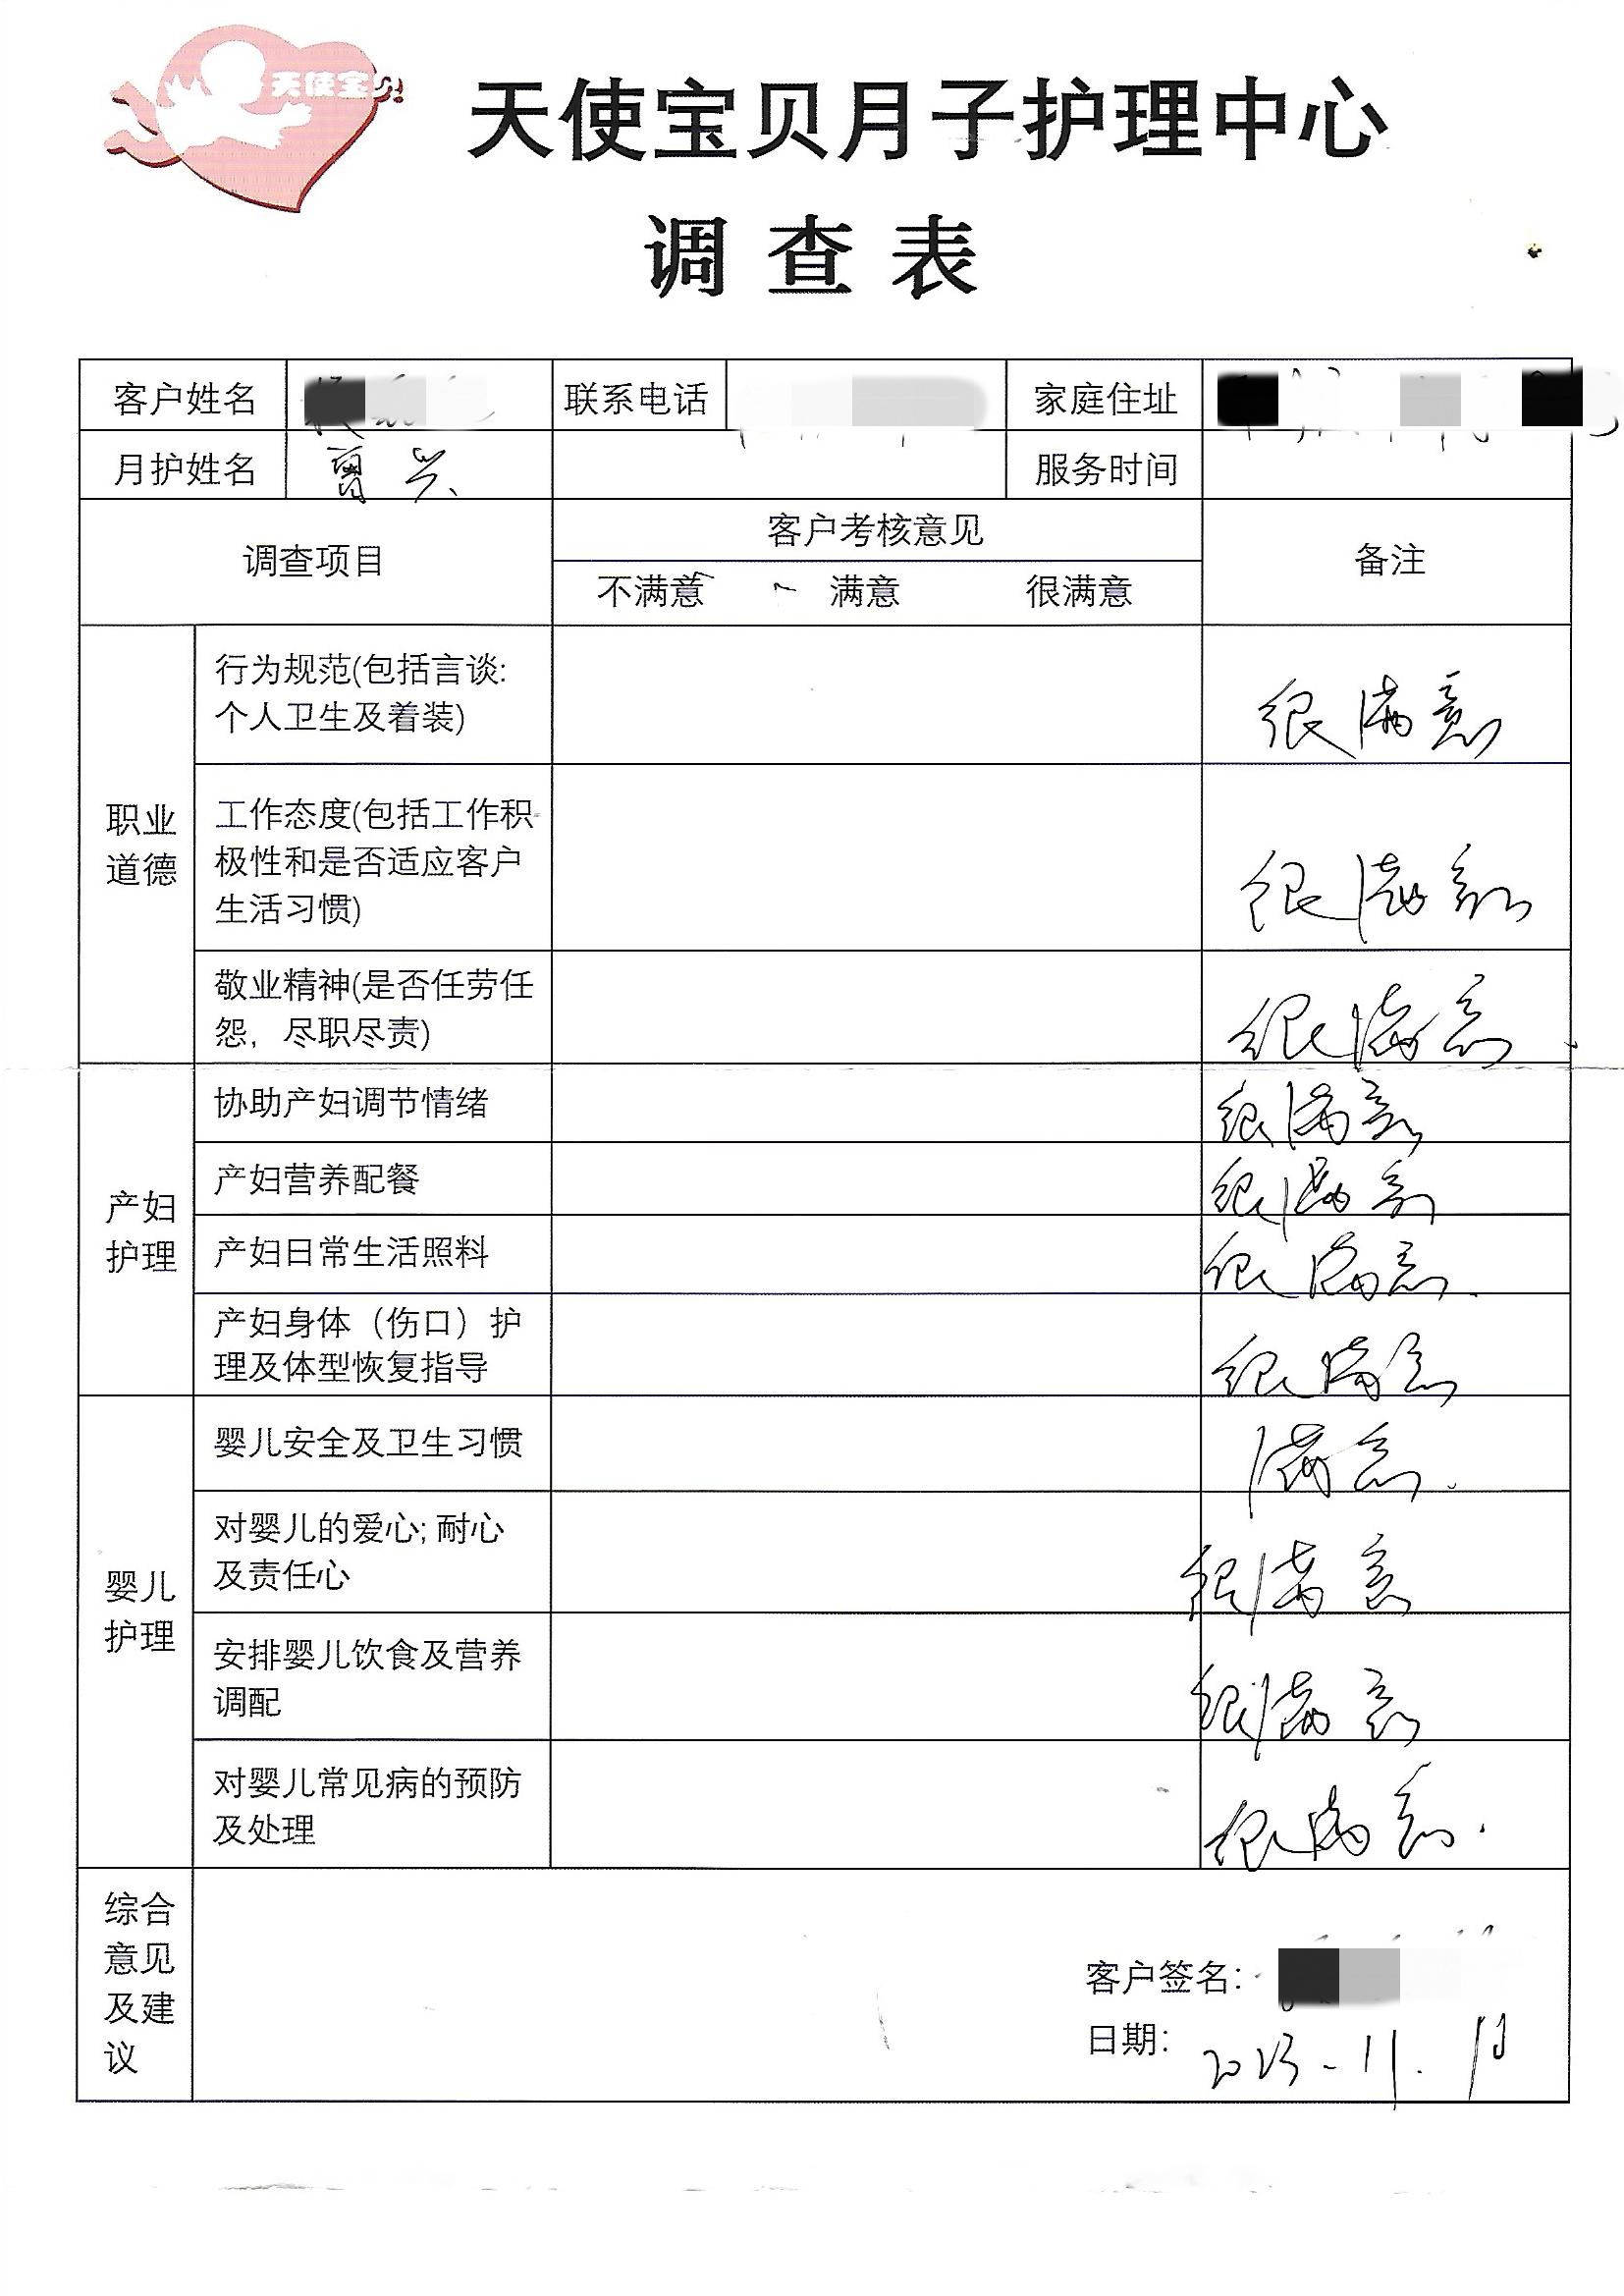 天使宝贝
天使宝贝月子护理中心
调查表
客户姓名 联系电话 家庭住址
月护姓名 服务时间
调查项目 客户考核意见 备注
不满意 满意 很满意
职业
道德
行为规范(包括言谈:
个人卫生及着装)
很满意
工作态度(包括工作积
极性和是否适应客户
生活习惯)
很满意
敬业精神(是否任劳任
怨，尽职尽责)
很满意
产妇
护理
协助产妇调节情绪 很满意
产妇营养配餐 很满意
产妇日常生活照料 很满意.
产妇身体（伤口）护
理及体型恢复指导
很满意
婴儿
护理
婴儿安全及卫生习惯 满意.
对婴儿的爱心; 耐心
及责任心
很满意
安排婴儿饮食及营养
调配
很满意
对婴儿常见病的预防
及处理
很满意.
综合
意见
及建
议
客户签名:
日期: 2023-11.